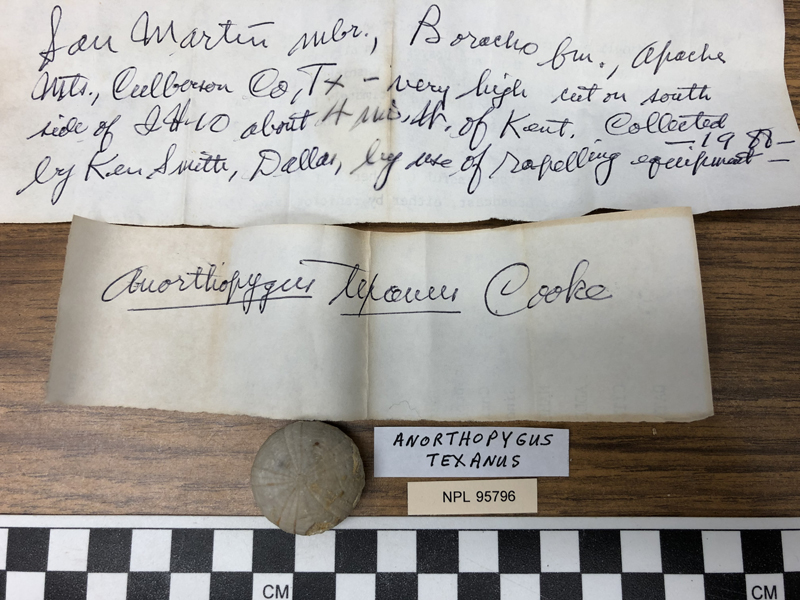 San Martin mbr., Boracho fm., Apache
Mts., Culberson Co, Tx - very high cut on south
side of IH-10 about 4 mi. W. of Kent. Collected
by Ken Smith, Dallas, by use of rapelling equipment
Anorthopygus texanus Cooke
ANORTHOPYGUS
TEXANUS
NPL 95796
CM
CM